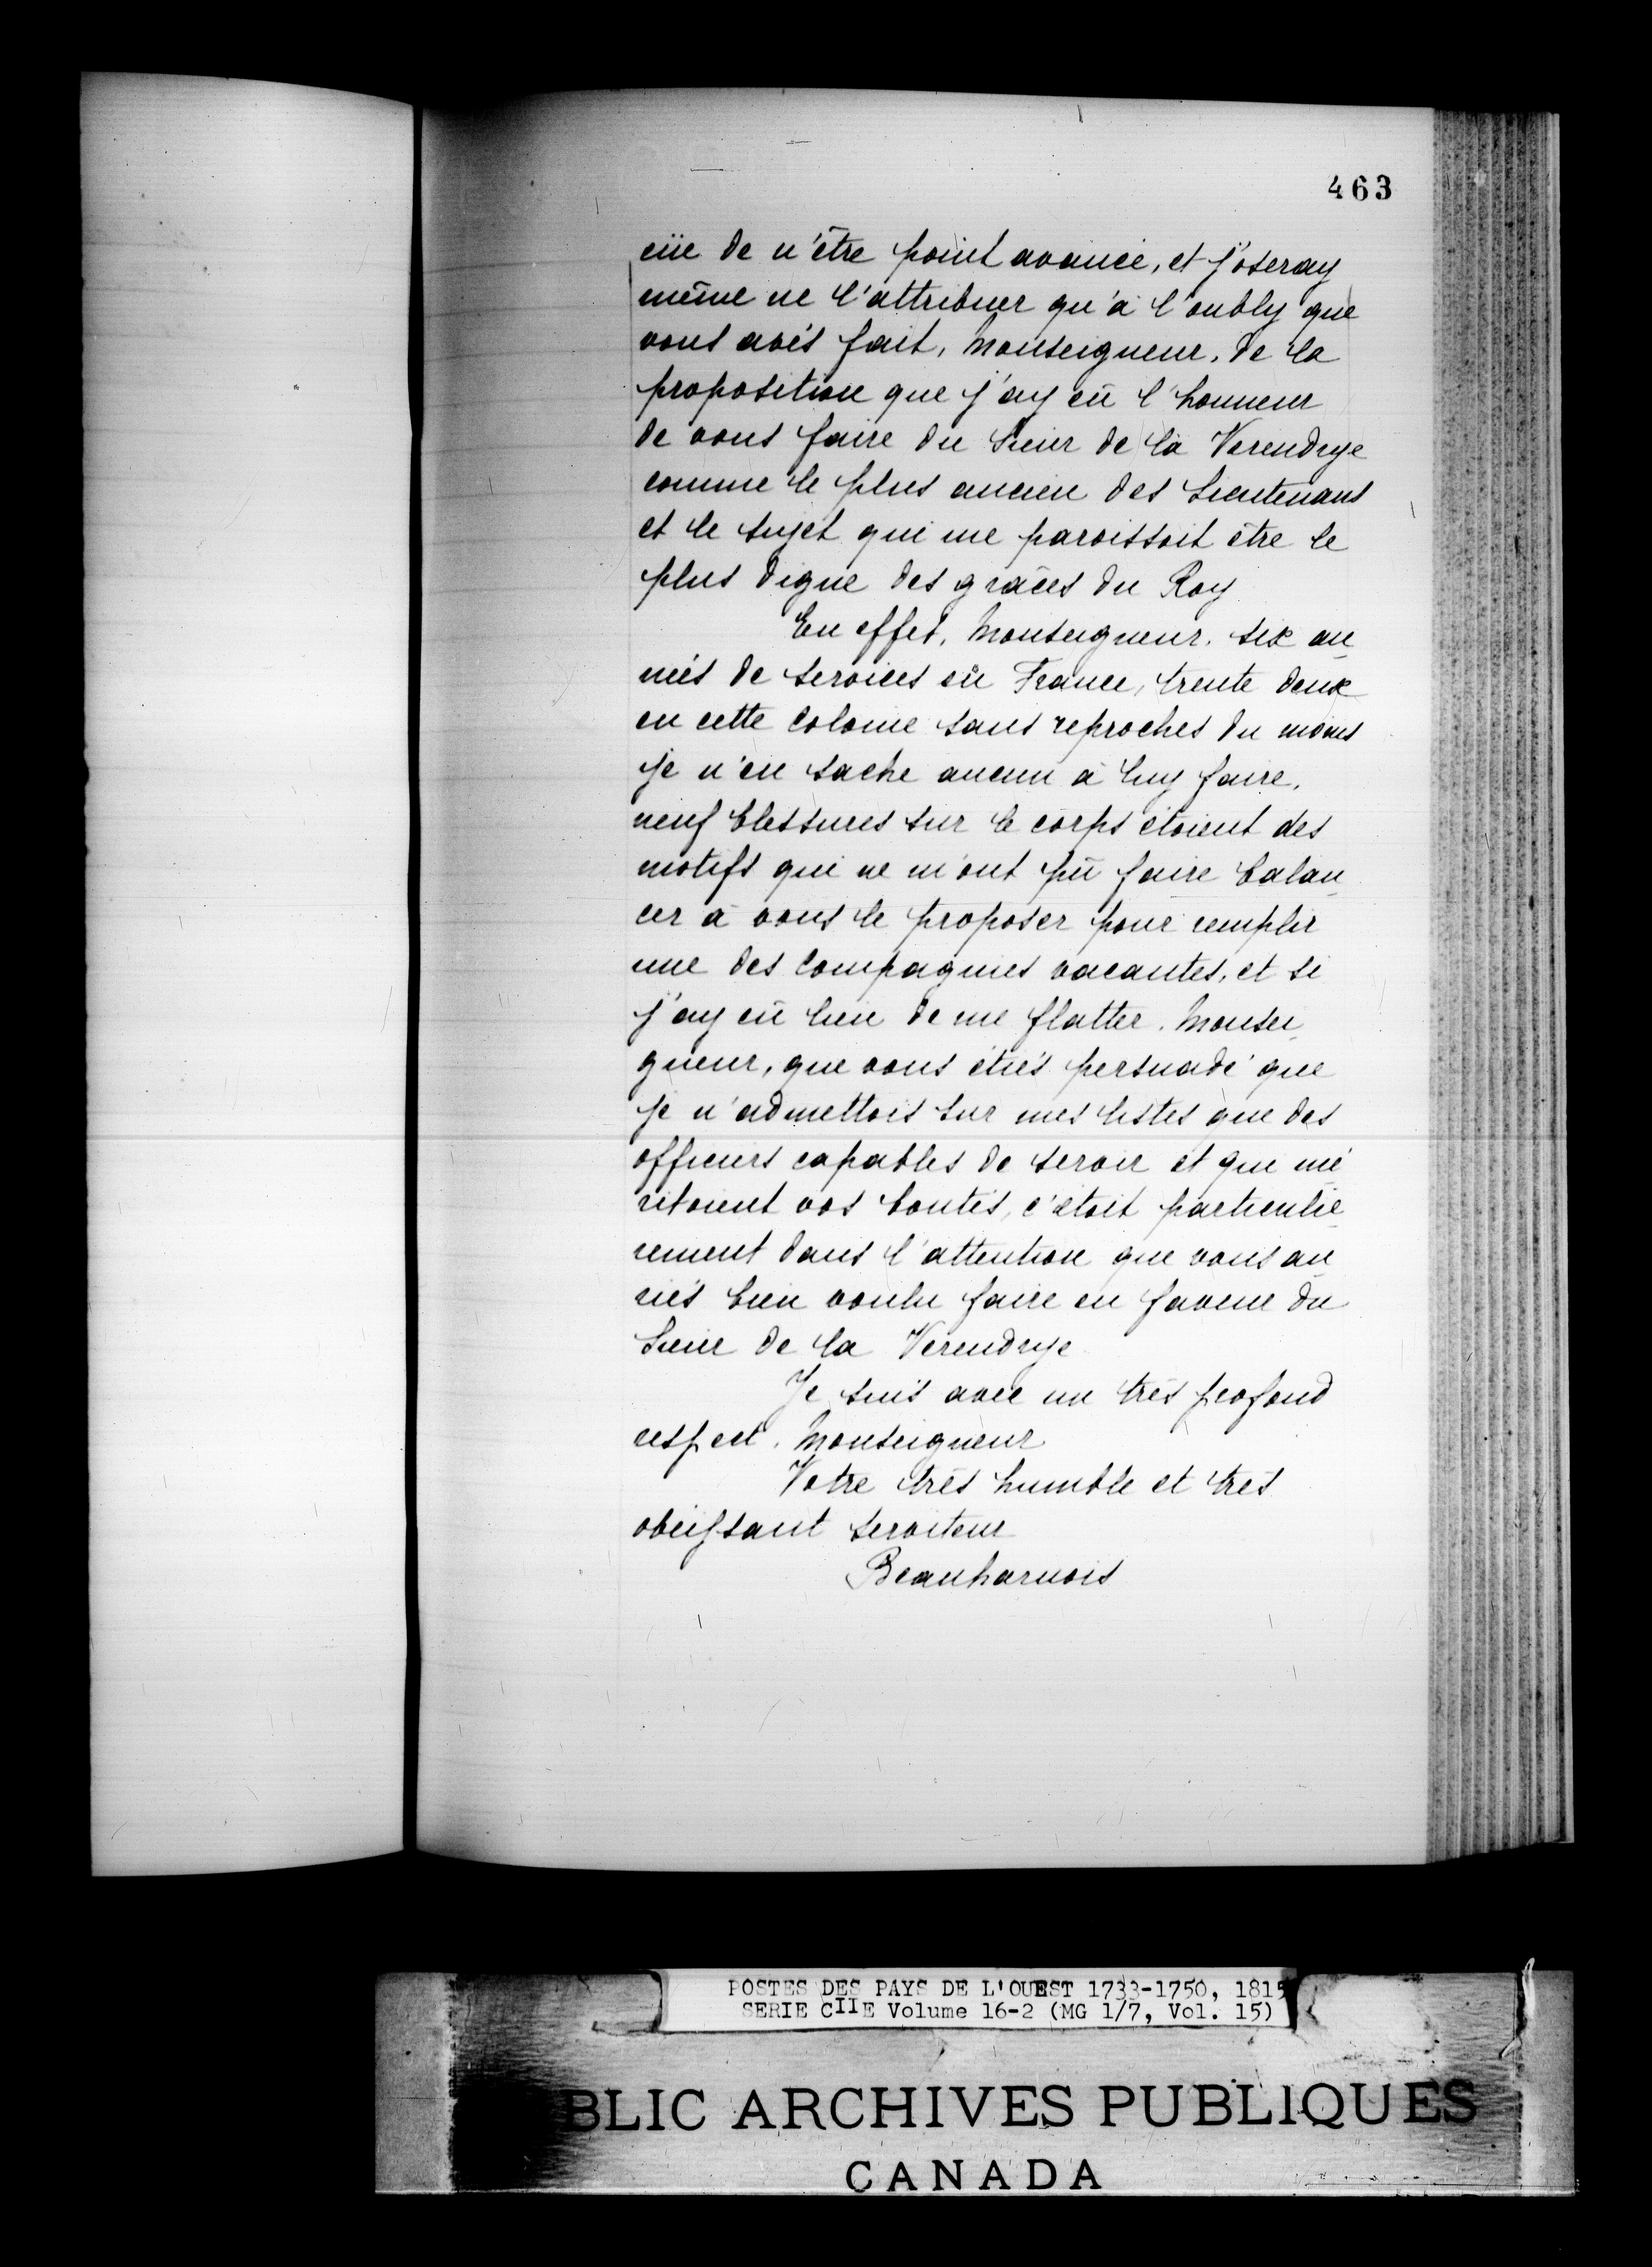 463
eüe de n'être point avancé, et j'oseray
même ne l'attribuer qu'à l'oubly que
vous avés fait, Monseigneur, de la
proposition que j'ay eû l'honneur
de vous faire du Sieur de la Verendrye
comme le plus ancien des Lieutenans
et le sujet qui me paroissoit être le
plus digne des grâces du Roy
En effet, Monseigneur, six an
nées de services en France, trente deux
en cette Colonie sans reproches du moins
je n'en sache aucun à luy faire,
neuf blessures sur le corps étoient des
motifs qui ne m'ont pû faire balan
cer à vous le proposer pour remplir
une des Compagnies vacantes, et si
j'ay eû lieu de me flatter, Monsei
gneur, que vous étiés persuadé que
je n'admettois sur mes listes que des
officiers capables de servir et qui mé
ritoient vos bontés, c'étoit particuliè
rement dans l'attention que vous au
riés bien voulu faire en faveur du
Sieur de la Verendrye
Je suis avec un très profond
respect, Monseigneur
Votre très humble et très
obéissant serviteur
Beauharnois
POSTES DES PAYS DE L'OUEST 1733-1750, 1815
SERIE CIIE Volume 16-2 (MG 1/7, Vol. 15)
BLIC ARCHIVES PUBLIQUES
CANADA